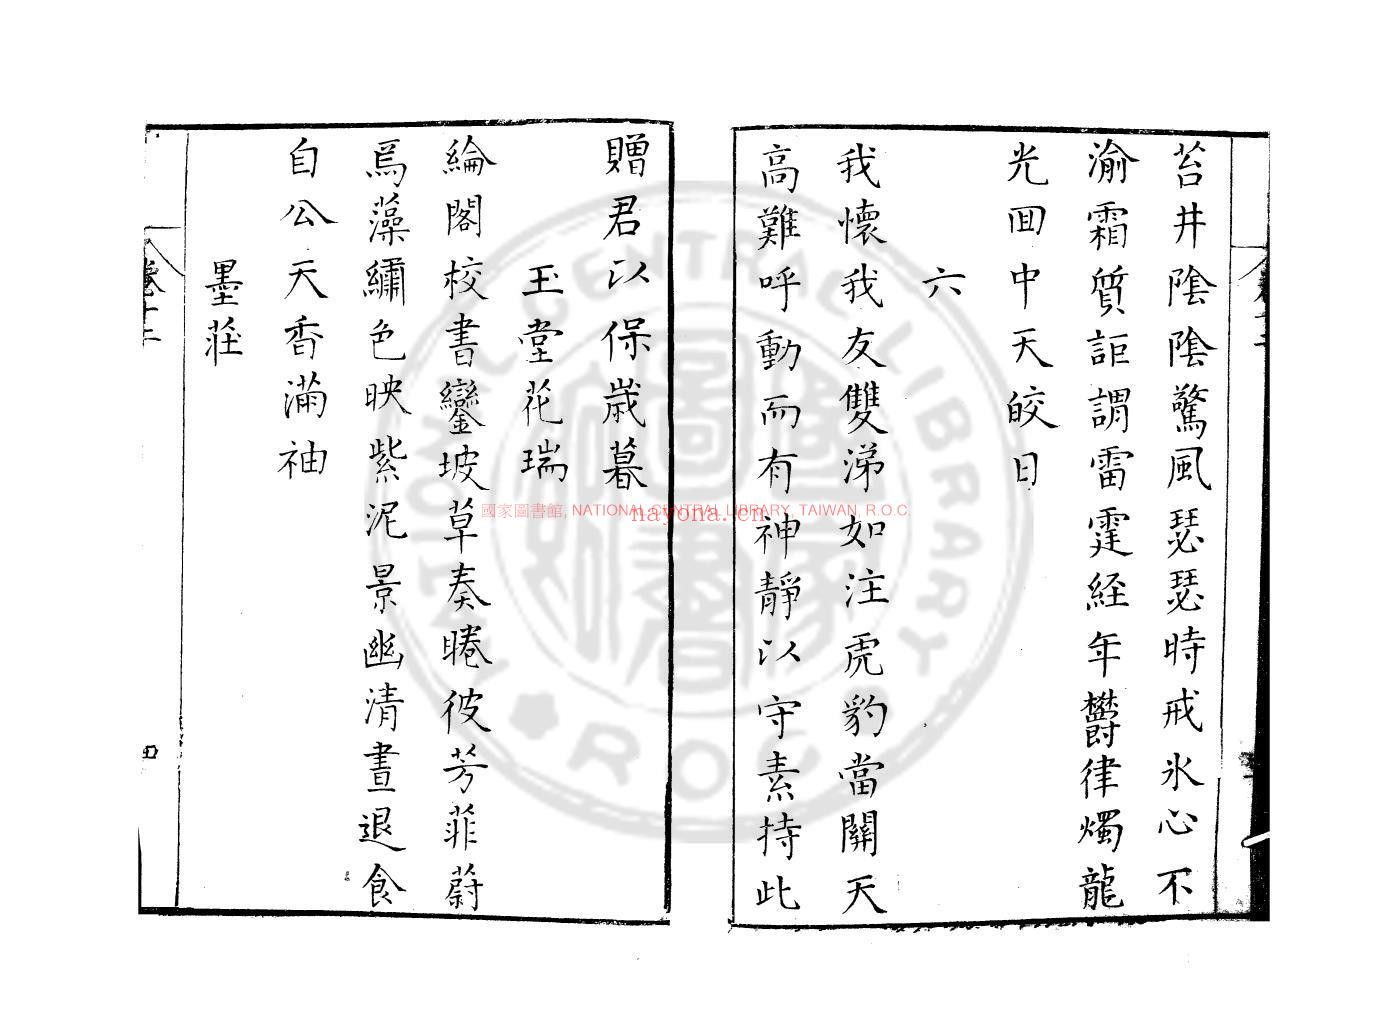 苔井陰陰驚風瑟瑟時戒氷心不
渝霜質詎謂雷霆経年欝律燭龍
光囬中天皎日
六
我懷我友雙涕如注虎豹當關天
高難呼動而有神靜以守素持此
贈君以保歲暮
玉堂花瑞
綸閣校書鑾坡草奏睠彼芳菲蔚
爲藻繡色映紫泥景幽清晝退食
自公天香滿袖
墨莊
卷十二
四
國家圖書館, NATIONAL CENTRAL LIBRARY, TAIWAN, R.O.C
nayona.cn
NATIONAL CENTRAL LIBRARY R.O.C